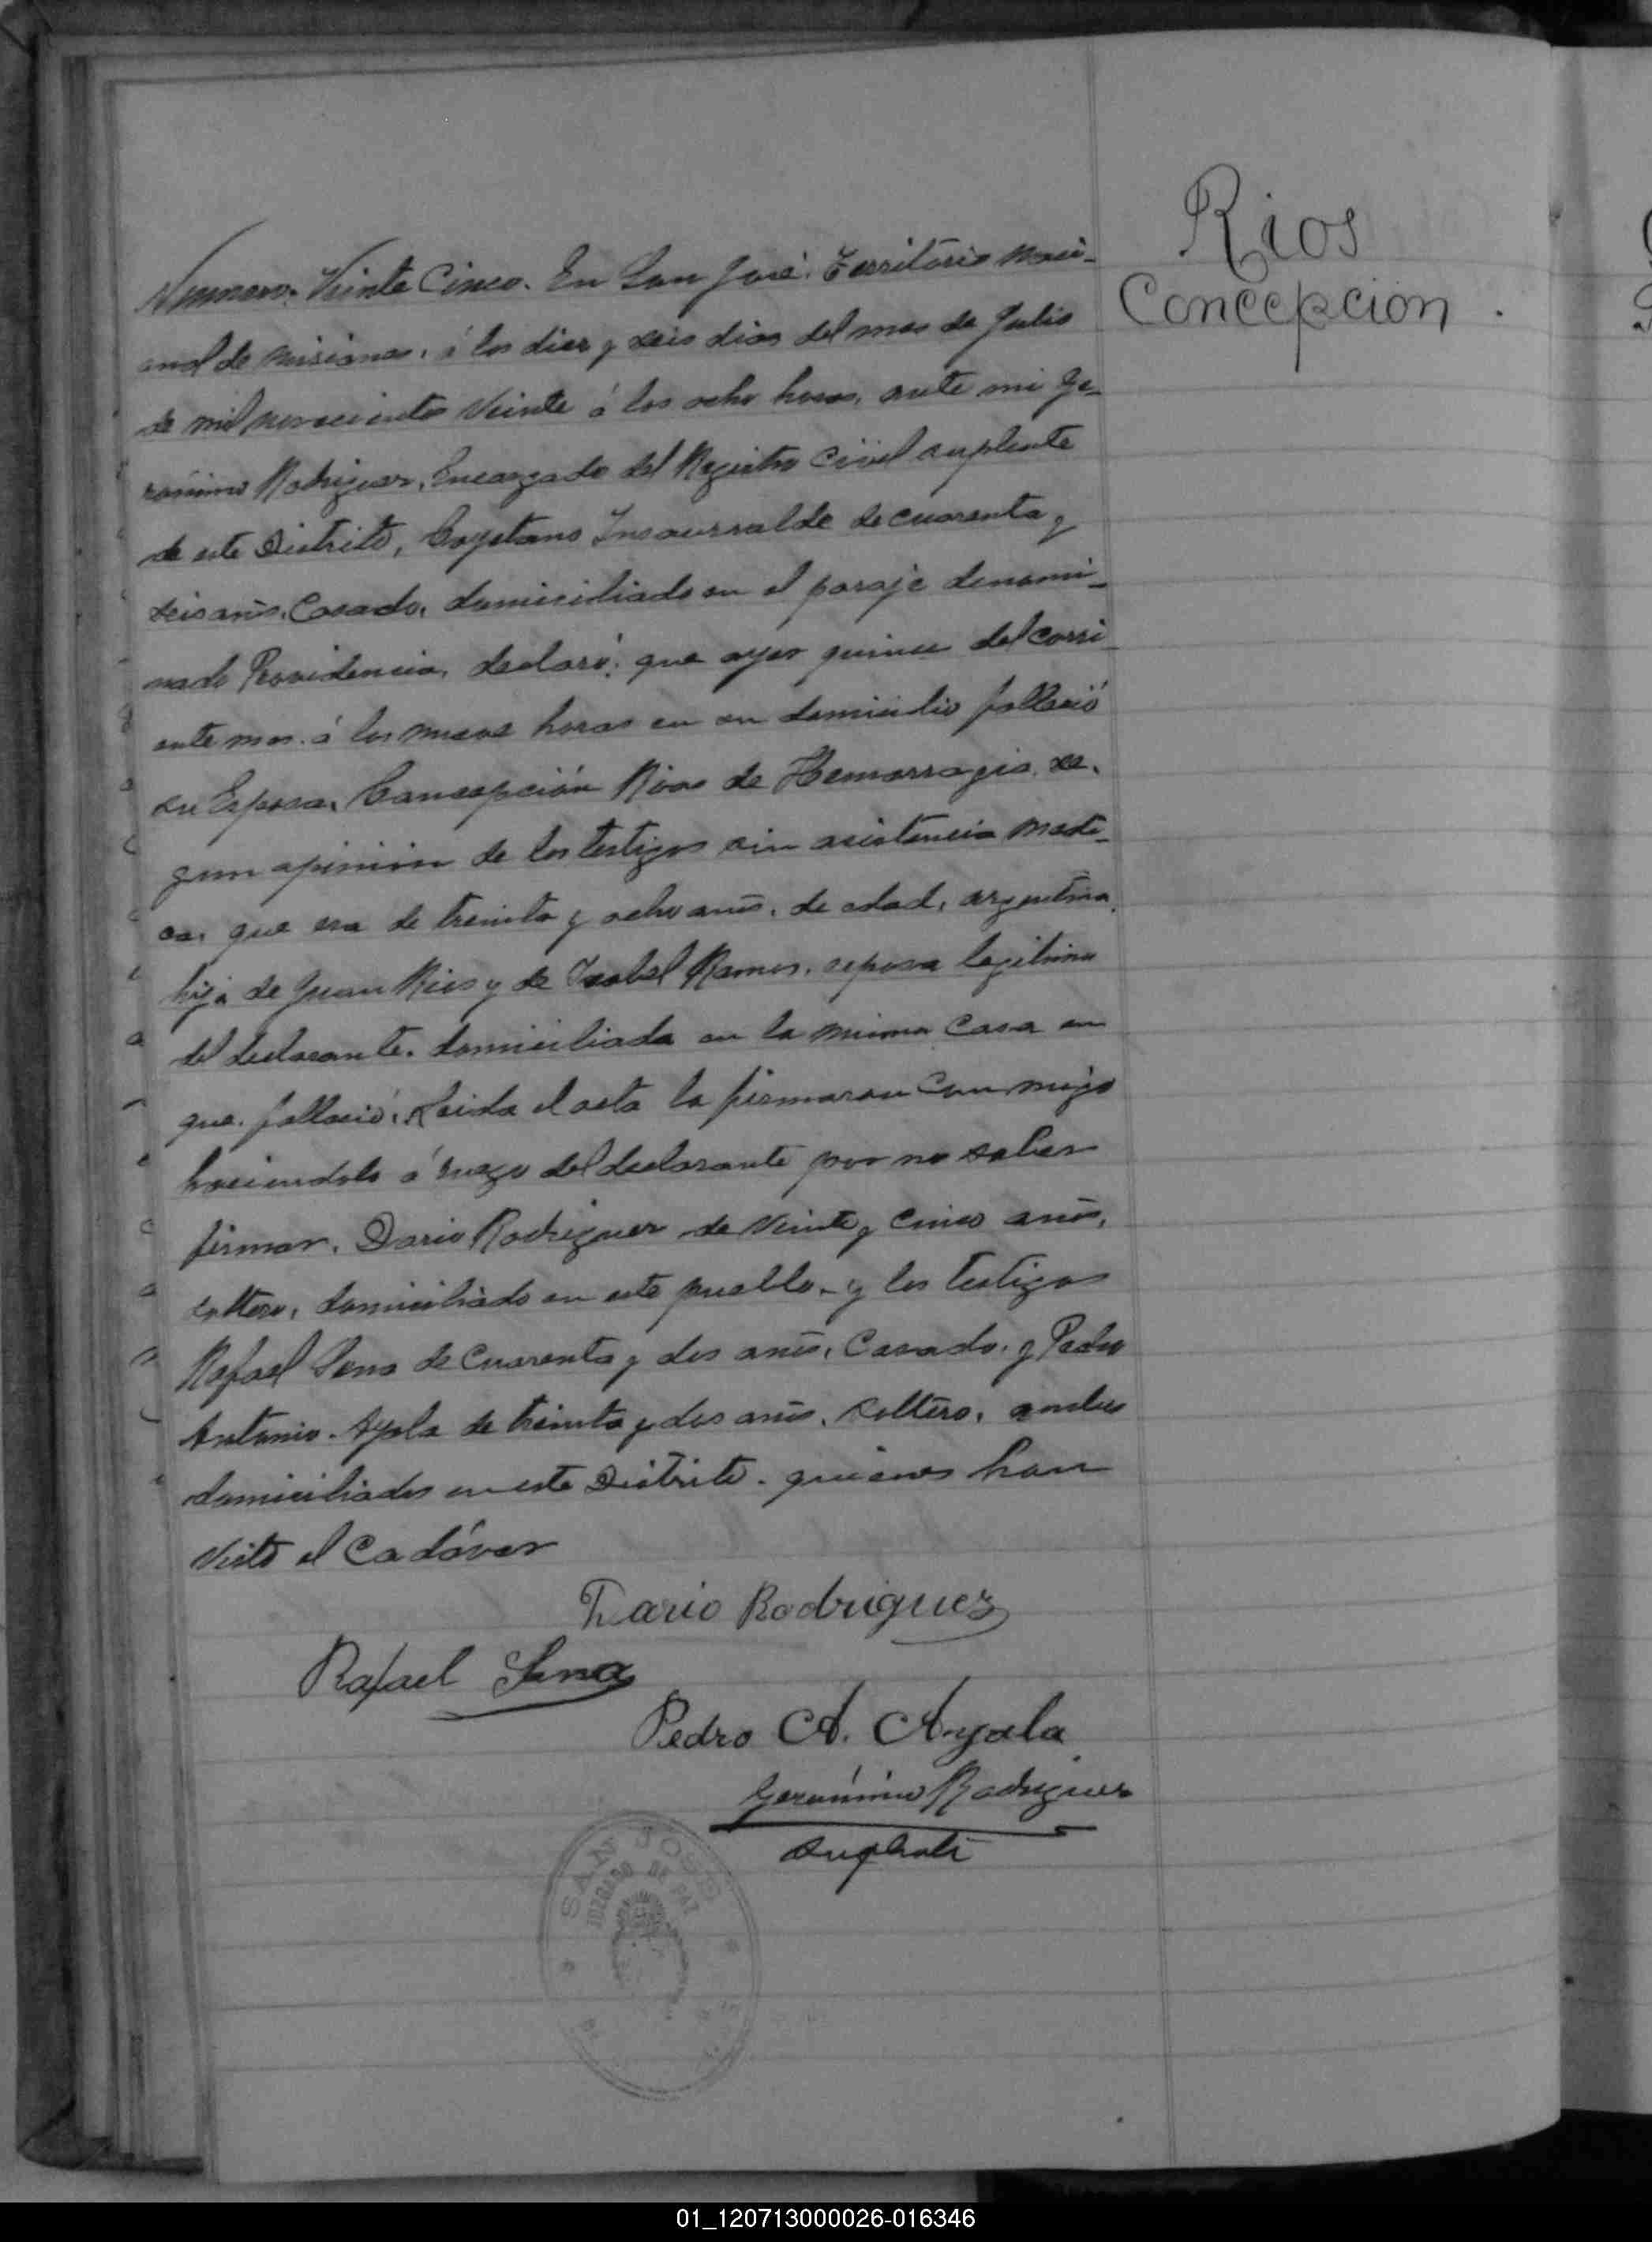 Rios
Concepcion.
Numero. Veinte Cinco. En San José. Territorio Naci-
onal de Misiones, á los diez y seis dias del mes de Julio
de mil novecientos Veinte á las ocho horas, ante mi Ge-
ronimo Rodriguez, Encargado del Registro Civil suplente
de este Distrito, Cayetano Insaurralde de cuarenta y
seis años, Casado, domiciliado en el paraje denomi-
nado Providencia, declaró: que ayer quince del corri-
ente mes á las nueve horas en su domicilio falleció
su Esposa, Concepción Rios de Hemorragia, se-
gun opinion de los testigos sin asistencia medi-
ca, que era de treinta y ocho años, de edad, argentina,
hija de Juan Rios y de Isabel Ramos, esposa legitima
del declarante, domiciliada en la misma Casa en
que falleció. Leida el acta la firmaron conmigo
haciendolo á ruego del declarante por no saber
firmar, Dario Rodriguez de veinte y cinco años,
soltero, domiciliado en este pueblo, y los testigos
Rafael Sena de Cuarenta y dos años, Casado, y Pedro
Antonio Ayala de treinta y dos años, soltero, ambos
domiciliados en este Distrito, quienes han
visto el Cadáver
Dario Rodriguez
Rafael Sena
Pedro A. Ayala
Gerónimo Rodriguez
Suplente
SAN JOSÉ
JUZGADO DE PAZ
01_120713000026-016346